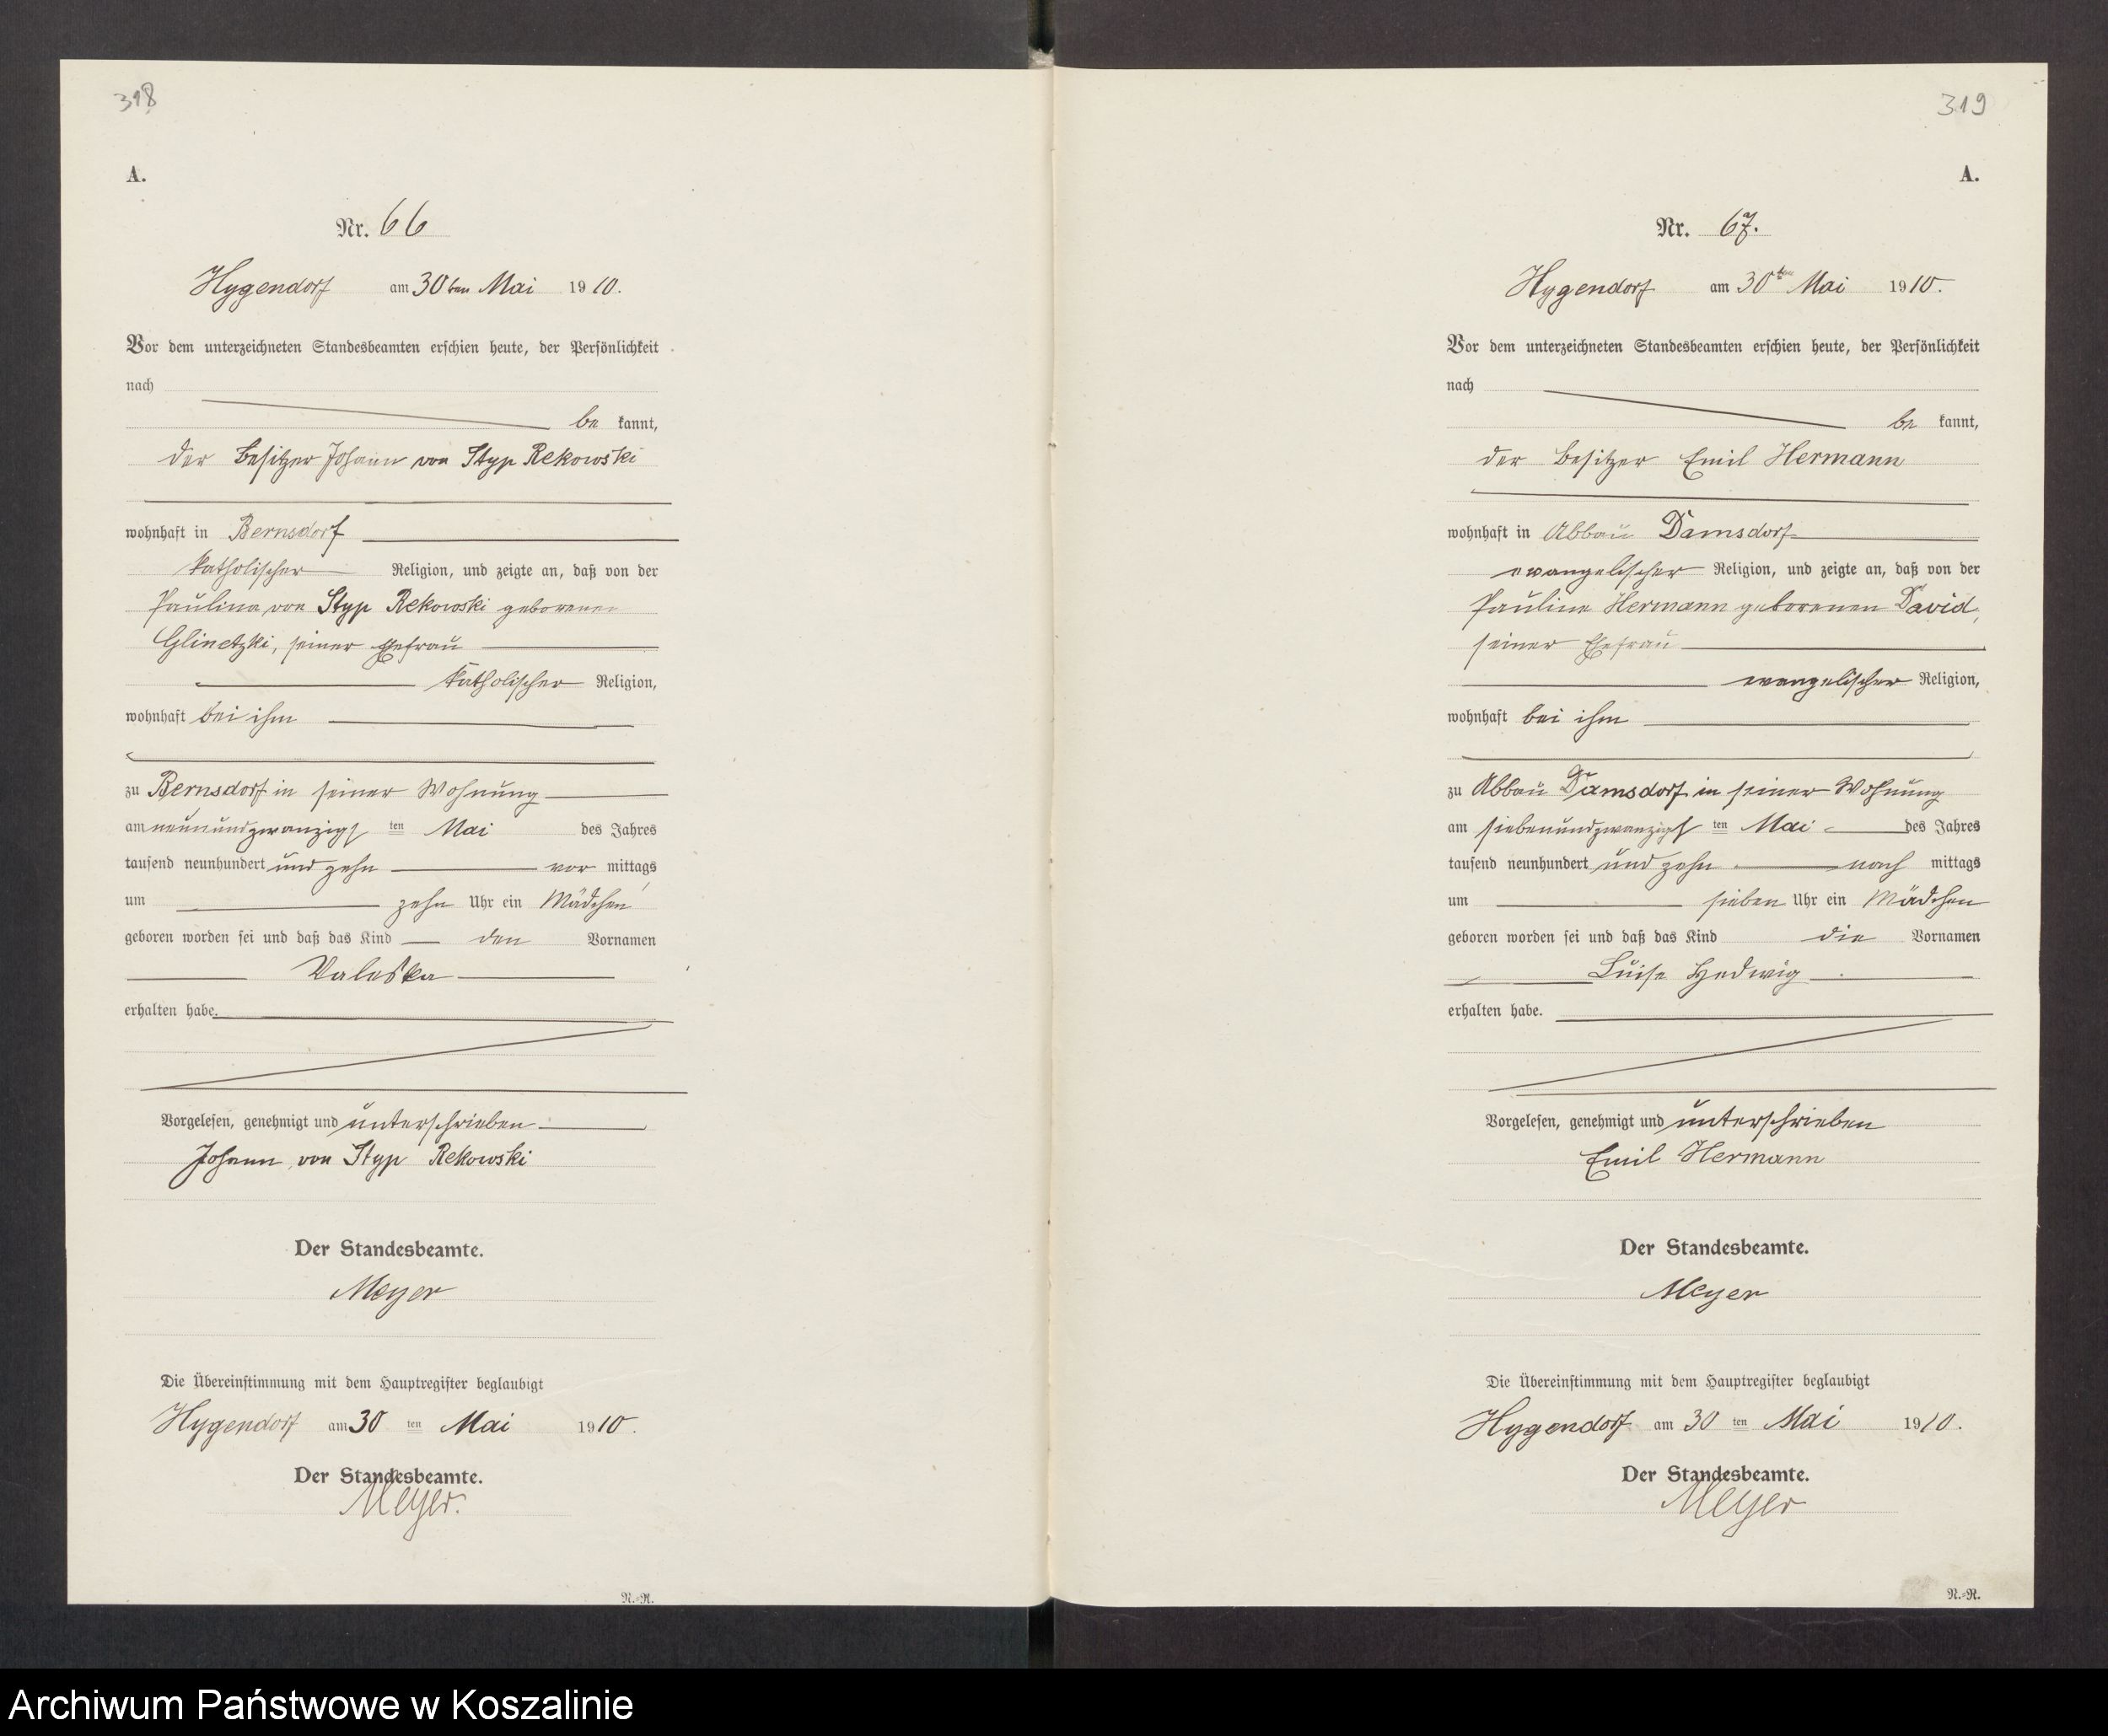 318
A.
Nr. 66
Hygendorf am 30ten Mai 1910.
Vor dem unterzeichneten Standesbeamten erschien heute, der Persönlichkeit
nach
be kannt,
der Besitzer Johann von Styp Rekowski
wohnhaft in Bernsdorf
katholischer Religion, und zeigte an, daß von der
Paulina von Styp Rekowski geborenen
Glinetzki, seiner Ehefrau
katholischer Religion,
wohnhaft bei ihm
zu Bernsdorf in seiner Wohnung
am neunundzwanzigs ten Mai des Jahres
tausend neunhundert und zehn vor mittags
um zehn Uhr ein Mädchen
geboren worden sei und daß das Kind den Vornamen
Valeska
erhalten habe.
Vorgelesen, genehmigt und unterschrieben
Johann von Styp Rekowski
Der Standesbeamte.
Meyer
Die Übereinstimmung mit dem Hauptregister beglaubigt
Hygendorf am 30 ten Mai 1910.
Der Standesbeamte.
Meyer.
N.-R.
319
A.
Nr. 67.
Hygendorf am 30ten Mai 1910.
Vor dem unterzeichneten Standesbeamten erschien heute, der Persönlichkeit
nach
be kannt,
der Besitzer Emil Hermann
wohnhaft in Abbau Damsdorf
evangelischer Religion, und zeigte an, daß von der
Pauline Hermann geborenen David,
seiner Ehefrau
evangelischer Religion,
wohnhaft bei ihm
zu Abbau Damsdorf in seiner Wohnung
am siebenundzwanzigs ten Mai des Jahres
tausend neunhundert und zehn nach mittags
um sieben Uhr ein Mädchen
geboren worden sei und daß das Kind die Vornamen
Luise Hedwig
erhalten habe.
Vorgelesen, genehmigt und unterschrieben
Emil Hermann
Der Standesbeamte.
Meyer
Die Übereinstimmung mit dem Hauptregister beglaubigt
Hygendorf am 30 ten Mai 1910.
Der Standesbeamte.
Meyer
N.-R.
Archiwum Państwowe w Koszalinie